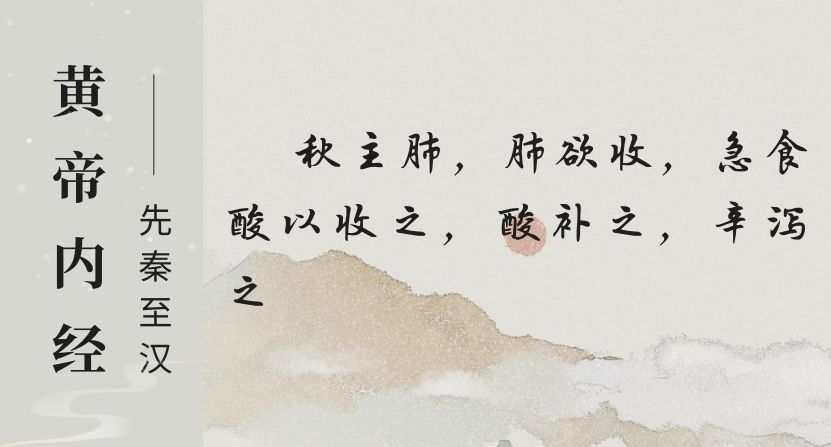 黄帝内经
——先秦至汉
秋主肺，肺欲收，急食
酸以收之，酸补之，辛泻
之